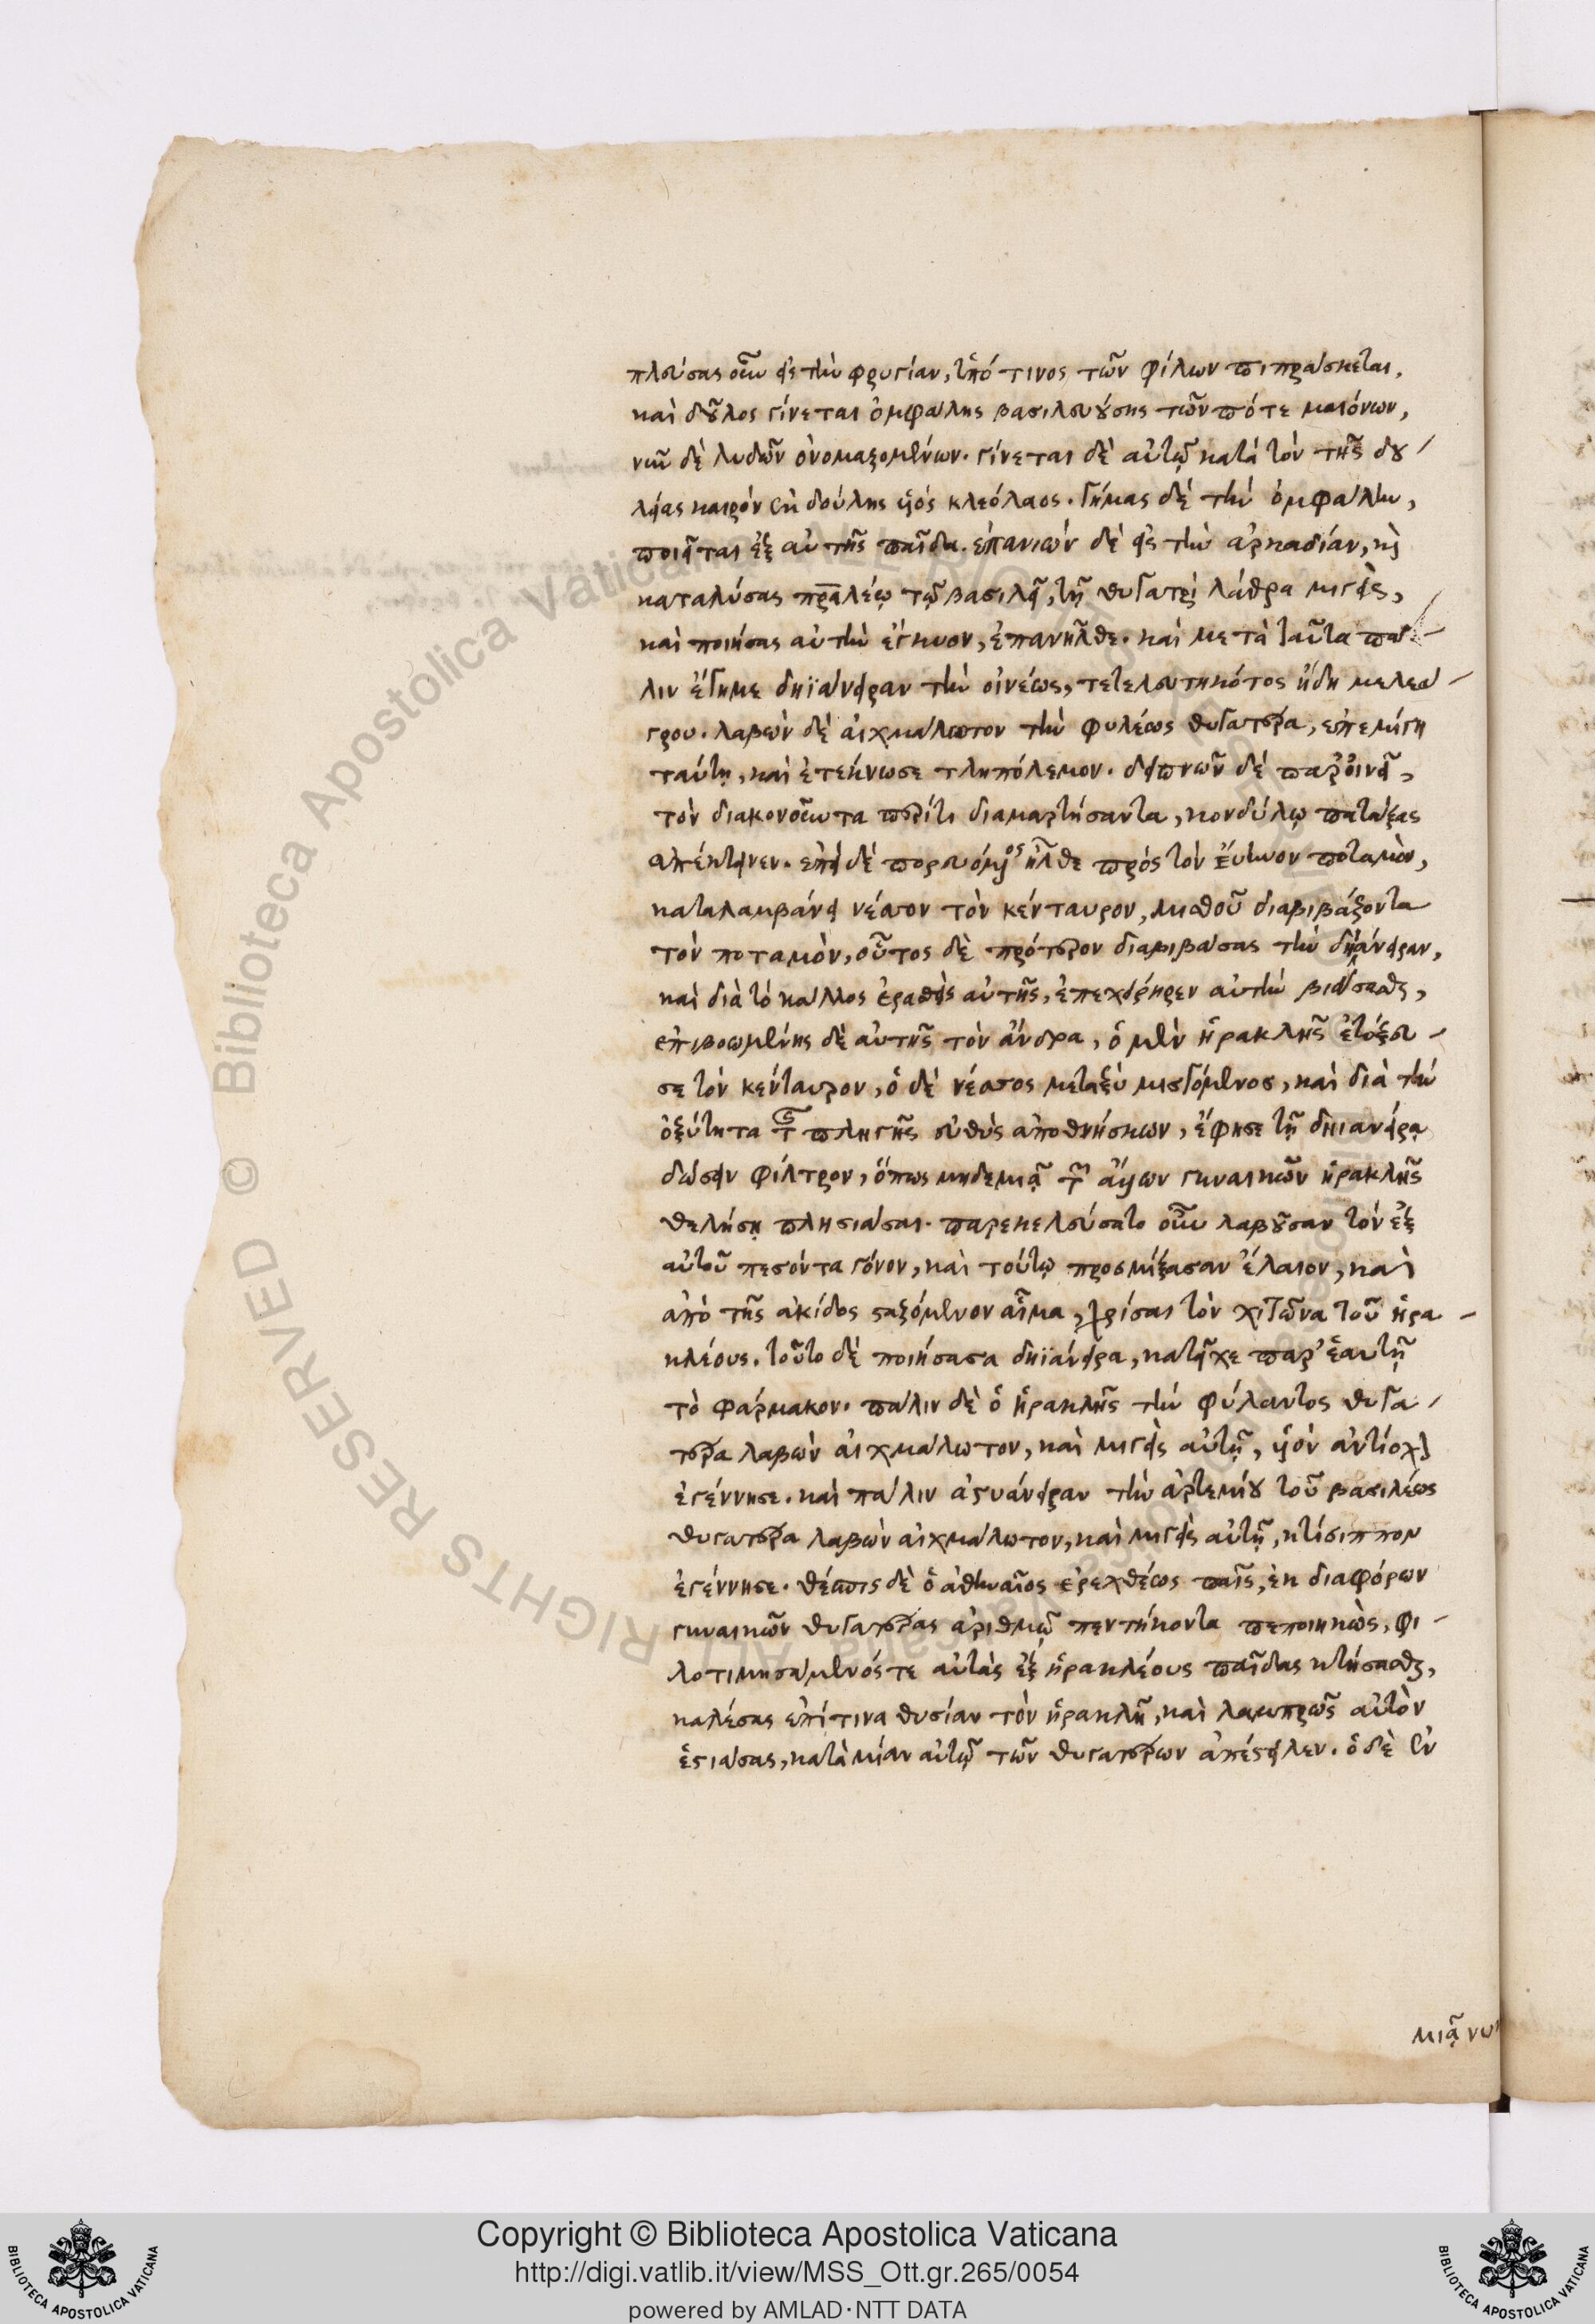 πλεύσας οὖν εἰς τὴν φρυγίαν, ὑπό τινος τῶν φίλων πιπράσκεται,
καὶ δοῦλος γίνεται ὀμφάλης βασιλευούσης τῶν πότε μαιόνων,
νῦν δὲ λυδῶν ὀνομαζομένων. γίνεται δὲ αὐτῷ κατὰ τὸν τῆς δου
λείας καιρὸν ἐκ δούλης υἱός κλεόλαος. γήμας δὲ τὴν ὀμφάλην,
ποιεῖται ἐξ αὐτῆς παῖδα. ἐπανιὼν δὲ εἰς τὴν ἀρκαδίαν, καὶ
καταλύσας πραλέῳ τῷ βασιλεῖ, τῇ θυγατρὶ λάθρα μιγεὶς,
καὶ ποιήσας αὐτὴν ἔγκυον, ἐπανῆλθε. καὶ μετὰ ταῦτα πά
λιν ἔγημε δηϊάνειραν τὴν οἰνέως, τετελευτηκότος ἤδη μελεά
γρου. λαβὼν δὲ αἰχμάλωτον τὴν φυλέως θυγατέρα, ἐπεμίγη
ταύτῃ, καὶ ἐτέκνωσε τληπόλεμον. δειπνῶν δὲ παρ' οἰνεῖ,
τὸν διακονοῦντα περί τι διαμαρτήσαντα, κονδύλῳ πατάξας
ἀπέκτεινεν. ἐπεὶ δὲ πορευόμενος ἦλθε πρὸς τὸν εὔηνον ποταμὸν,
καταλαμβάνει νέσσον τὸν κένταυρον, μισθοῦ διαβιβάζοντα
τὸν ποταμὸν, οὗτος δὲ πρότερον διαβιβάσας τὴν δηϊάνειραν,
καὶ διὰ τὸ κάλλος ἐραθεὶς αὐτῆς, ἐπεχείρησεν αὐτὴν βιάσασθαι,
ἐπιβοωμένης δὲ αὐτῆς τὸν ἄνδρα, ὁ μὲν ἡρακλῆς ἐτόξευ
σε τὸν κένταυρον, ὁ δὲ νέσσος μεταξὺ μισγόμενος, καὶ διὰ τὴν
ὀξύτητα τῆς πληγῆς εὐθὺς ἀποθνήσκων, ἔφησε τῇ δηιανείρᾳ
δώσειν φίλτρον, ὅπως μηδεμιᾷ τῶν ἄλλων γυναικῶν ἡρακλῆς
θελήσῃ πλησιάσαι. παρεκελεύσατο οὖν λαβοῦσαν τὸν ἐξ
αὐτοῦ πεσόντα γόνον, καὶ τούτῳ προσμίξασαν ἔλαιον, καὶ
ἀπὸ τῆς ἀκίδος σταζόμενον αἷμα, χρίσαι τὸν χιτῶνα τοῦ ἡρα
κλέους. τοῦτο δὲ ποιήσασα δηϊάνειρα, κατεῖχε παρ' ἑαυτῇ
τὸ φάρμακον. πάλιν δὲ ὁ ἡρακλῆς τὴν φύλαντος θυγα
τέρα λαβὼν αἰχμάλωτον, καὶ μιγεὶς αὐτῇ, υἱὸν ἀντίοχον
ἐγέννησε. καὶ πάλιν ἀστυάνειραν τὴν ἀρτεμίου τοῦ βασιλέως
θυγατέρα λαβὼν αἰχμάλωτον, καὶ μιγεὶς αὐτῇ, κτίσιππον
ἐγέννησε. θέσπις δὲ ὁ ἀθηναῖος ἐρεχθέως παῖς, ἐκ διαφόρων
γυναικῶν θυγατέρας ἀριθμῷ πεντήκοντα πεποιηκὼς, φι
λοτιμησάμενός τε αὐτὰς ἐξ ἡρακλέους παῖδας κτήσασθαι,
καλέσας ἐπί τινα θυσίαν τὸν ἡρακλῆ, καὶ λαμπρῶς αὐτὸν
ἑστιάσας, κατὰ μίαν αὐτῷ τῶν θυγατέρων ἀπέστειλεν. ὁ δὲ ἐν
μιᾷ νυ
Copyright © Biblioteca Apostolica Vaticana
http://digi.vatlib.it/view/MSS_Ott.gr.265/0054
powered by AMLAD·NTT DATA